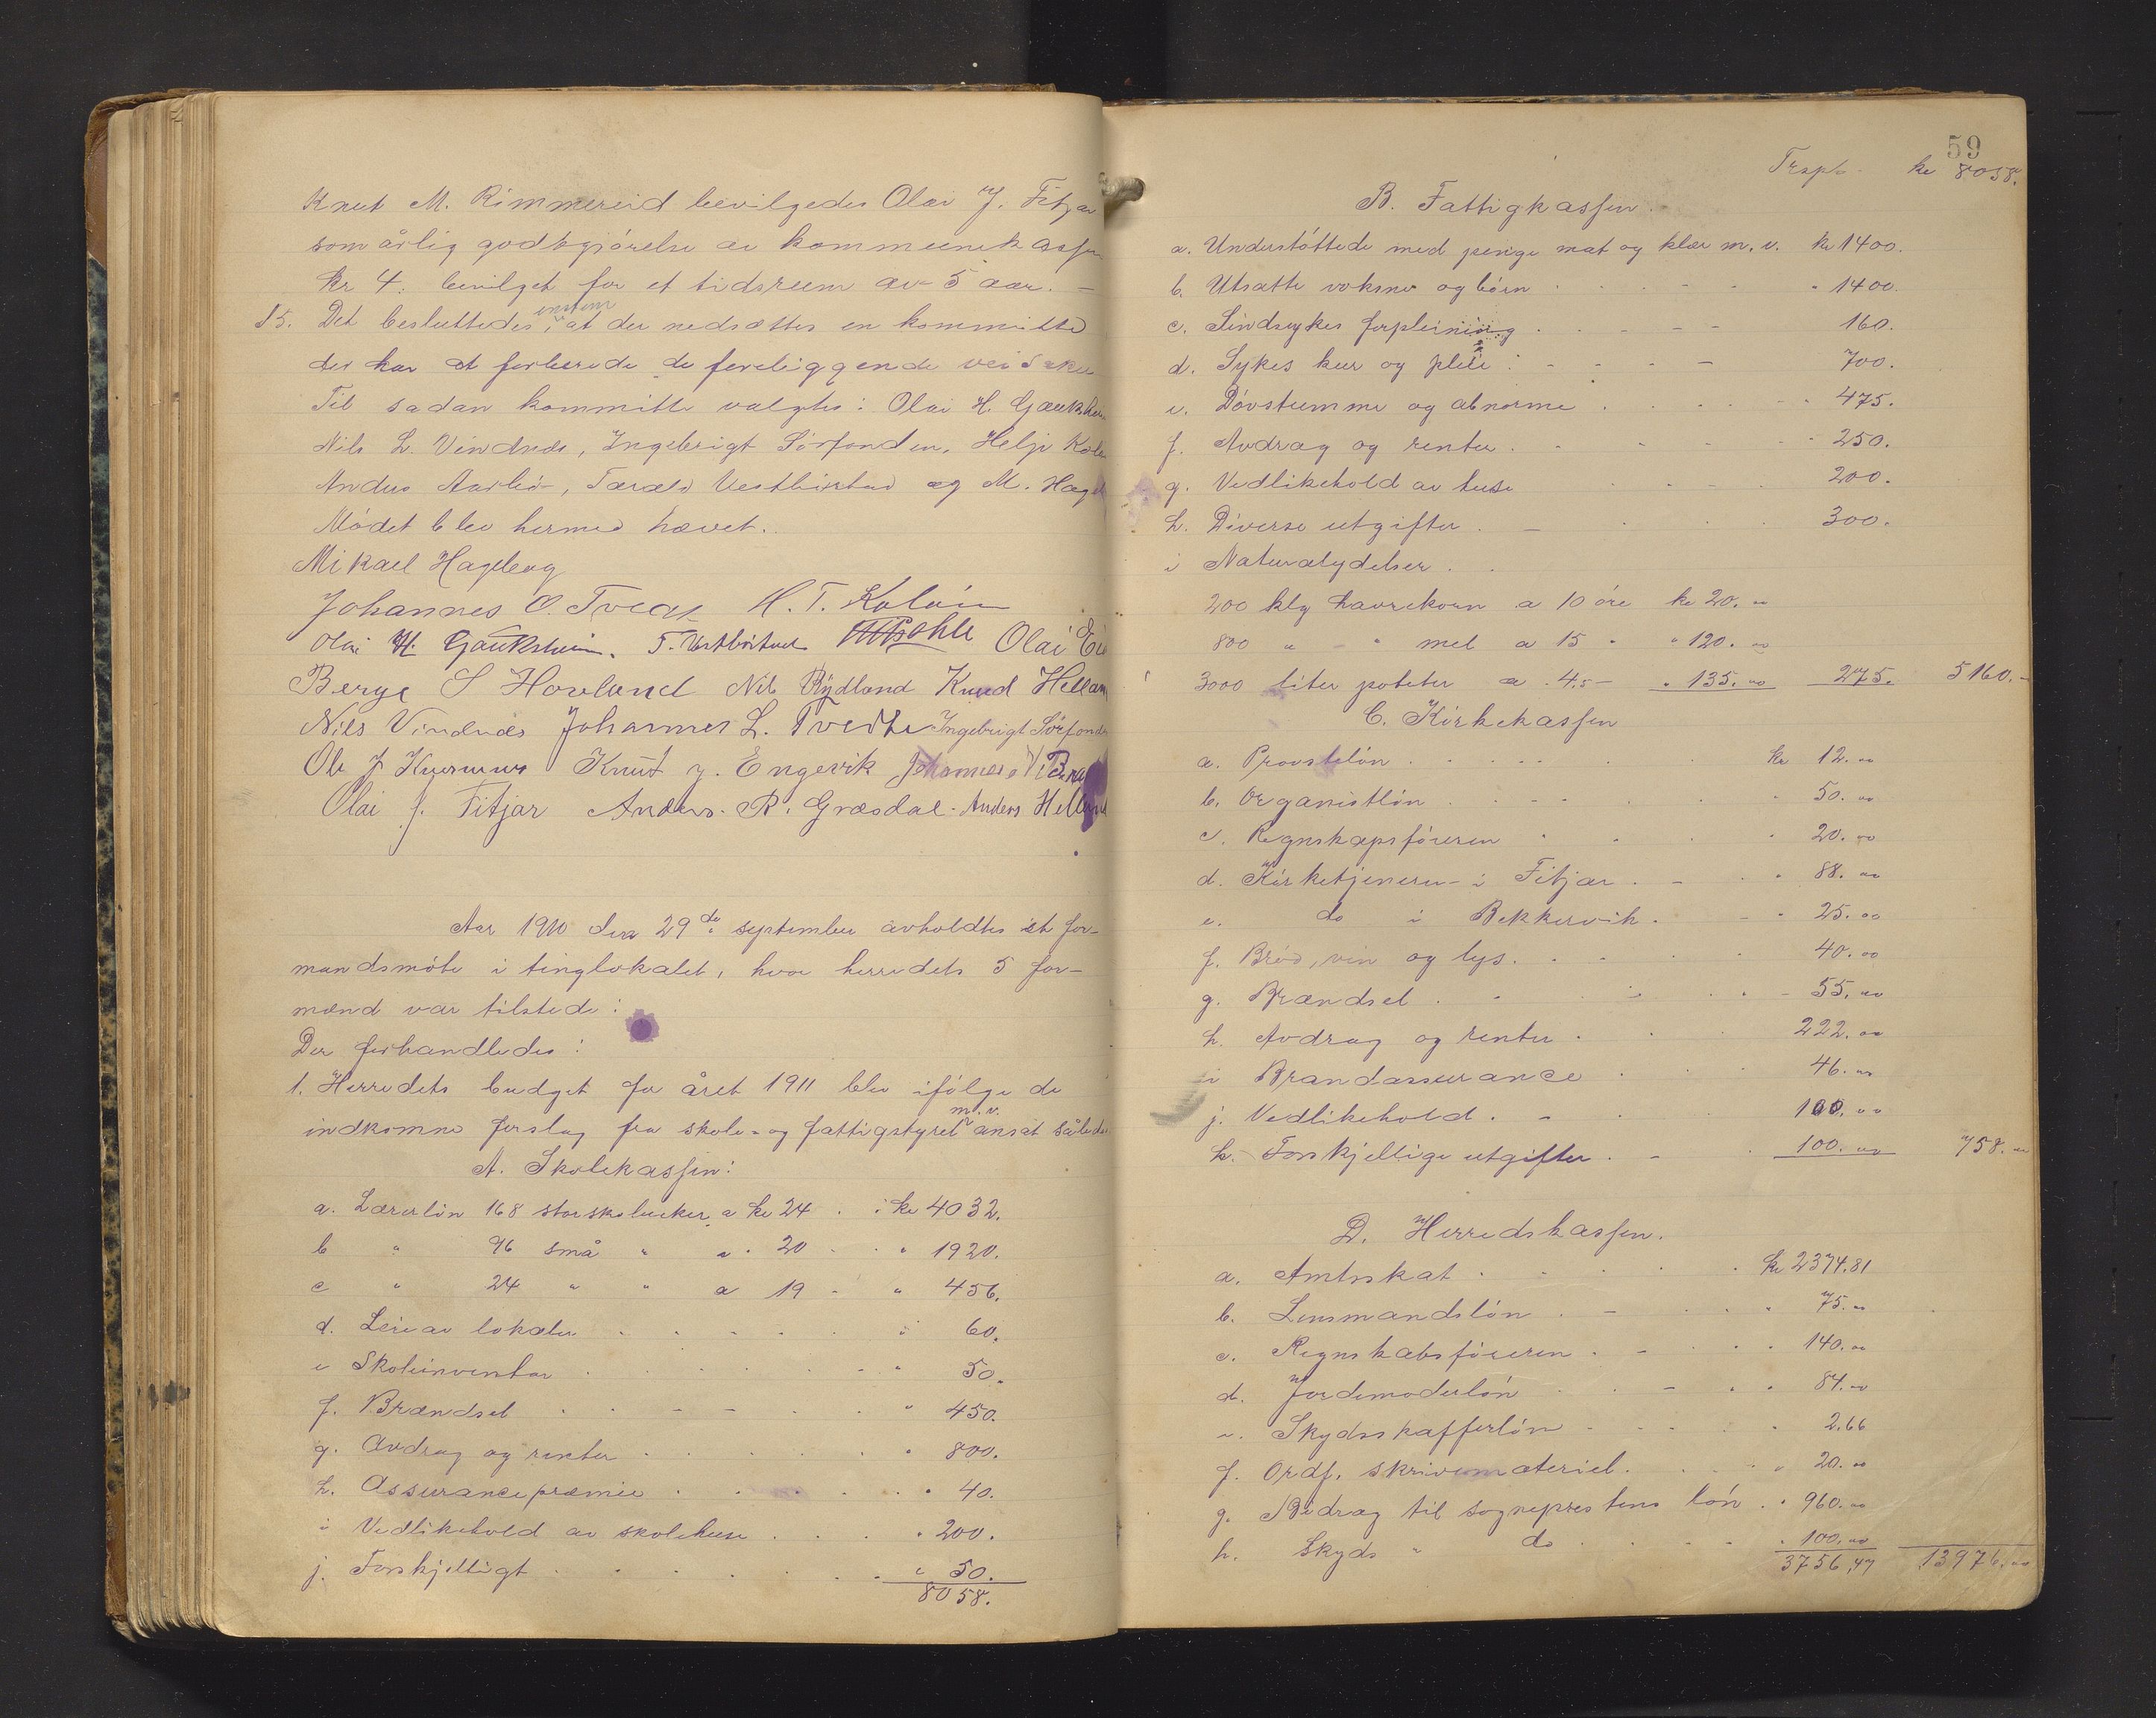 Knut M. Rimmereid bevilgedes Olai J. Fitjar
som årlig godtgjórelse av kommunekassen
kr 4. bevilget for et tidsrum av 5 aar. –
15. Det besluttedes, at der nedsættes en kommitte
der har at forberede de foreliggende veisaker
Til sadan kommitte valgtes: Olai H. Gaukshei
Nils L. Vindnes, Ingebrigt Sörfonden, Helje
Anders Aarbö, Tarald Vestbóstad og M. Hage
Módet blev hermed hævet.
Mikael Hageberg
Johannes O. Tvedt H. T. Koløin
Olai H. Gaukshein. T. Vestbóstad Olai
Berge S Hovland Nils Rydland Knud Hellan
Nils Vindnes Johannes L. Tvedte Ingebrigt Sörfond
Ole J Knut J. Engevik Johannes
Olai J. Fitjar Anders R. Græsdal Anders Helland
Aar 1910 den 29de september avholdtes et for-
mandsmóte i tinglokalet, hvor herredets 5 for-
mænd var tilstede:
Der forhandledes:
1. Herredets budget for året 1911 blev ifólge de
indkomne forslag fra skole- og fattigstyret m.v. ansat således
A. Skolekassen:
a. Lærerlón 168 storskoleuker a kr 24 . . kr 4032.
b " 96 små " a . 20 . . " 1920.
c " 24 " " a 19 - " 456.
d. Leie av lokaler . . . . . " 60.
e Skoleinventar . . . . . " 50.
f. Brændsel . . . . . " 450.
g. Avdrag og renter . . . . . " 800.
h. Assurancepræmie . . . . . " 40.
i Vedlikehold av skolehuse . . . . " 200.
j. Forskjelligt . . . . . " 50.
8058.
59
Trspt. kr 8058.
B. Fattigkassen.
a. Understóttede med penge mat og klær m. v. kr 1400.
b. Utsatte voksne og börn . . . . " 1400.
c. Sindsykes forpleining . . . . 160.
d. Sykes kur og pleie . . . . 700.
e. Dóvstumme og abnorme . . . . 475.
f. Avdrag og renter . . . . 250.
g. Vedlikehold av huse . . . 200.
h. Diverse utgifter . . . 300.
i Naturalydelser . .
200 klg havrekorn a 10 óre kr 20. 00
800 " " mel a 15 " " 120. 00
3000 liter poteter a 4.5 – " 135. 00 275. 5160.–
C. Kirkekassen
a. Provstelón . . . . . kr 12. 00
b. Organistlón . . . . . " 50. 00
c. Regnskapsfóreren . . . " 20. 00
d. Kirketjeneren i Fitjar . . . " 88. 00
e. do i Bekkervik . . . " 25. 00
f. Bród, vin og lys. . . . . 40. 00
g. Brændsel . . . . . 55. 00
h. Avdrag og renter . . . 222. 00
i Brandassurance . . . 46. 00
j. Vedlikehold . . . 100. 00
k. Forskjellige utgifter . . . 100. 00 758. 00
D. Herredskassen.
a. Amtsskat . . . . . kr 2374.81
b. Lensmandslón . . . . . " 75. 00
c. Regnskabsfóreren . . . . . 140. 00
d. Jordemoderlón . . . . . 84. 00
e. Skydsskafferlón . . . . . 2.66
f. Ordf. skrivemateriel. . . . " 20. 00
g. Bidrag til sogneprestens lón . . 960. 00
h. Skyds " do . . . . " 100. 00
3756,47 13976. 00